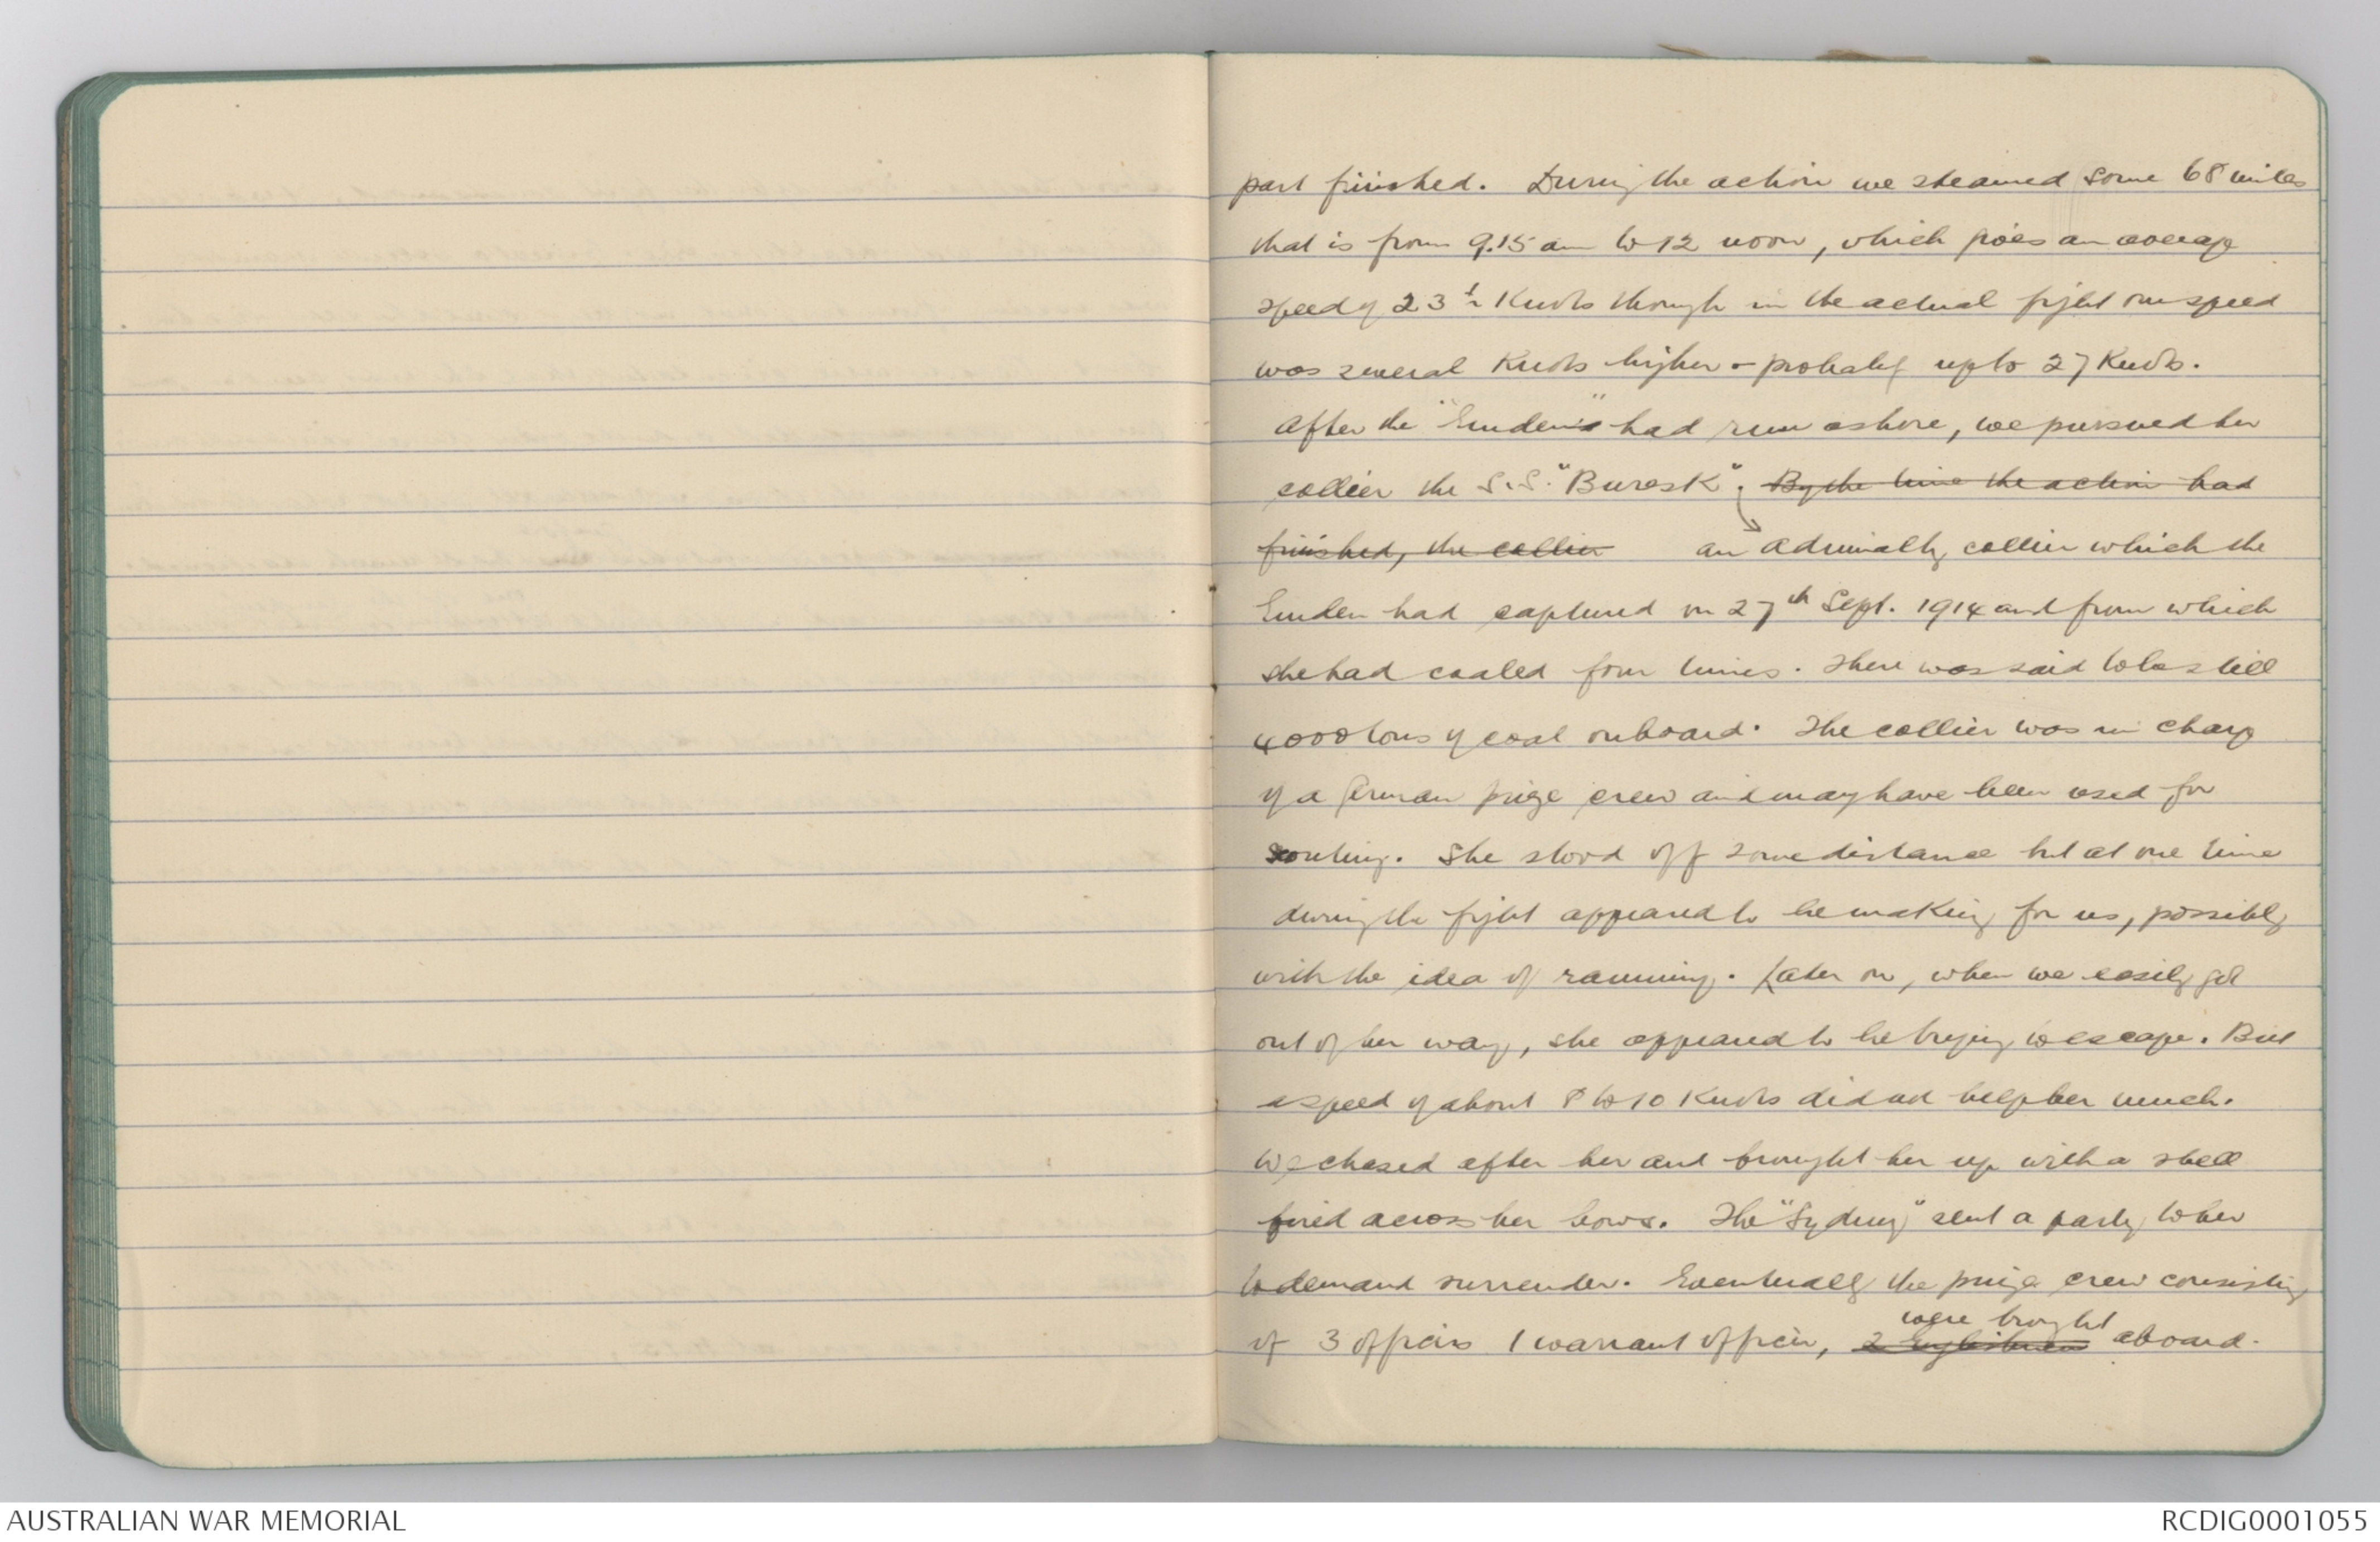 part finished. During the action we steamed some 68 miles
that is from 9.15 am to 12 noon, which gives an average
speed of 23½ Knots though in the actual fight our speed
was several Knots higher - probably up to 27 Knots.
After the "Emden's" had run ashore, we pursued her
collier the S.S. "Buresk". By the time the action had
finished, the collier an Admiralty collier which the
Emden had captured on 27th Sept. 1914 and from which
she had coaled four times. There was said to be still
4000 tons of coal onboard. The collier was in charge
of a German prize crew and may have been used for
scouting. She stood off some distance but at one time
during the fight appeared to be making for us, possibly
with the idea of ramming. Later on, when we easily got
out of her way, she appeared to be trying to escape. But
a speed of about 8 to 10 Knots did not help her much.
We chased after her and brought her up with a shell
fired across her bows. The "Sydney" sent a party to her
to demand surrender. Eventually the prize crew consisting
were brought
of 3 officers 1 warrant officer, 2 Englishmen aboard.
AUSTRALIAN WAR MEMORIAL
RCDIG0001055